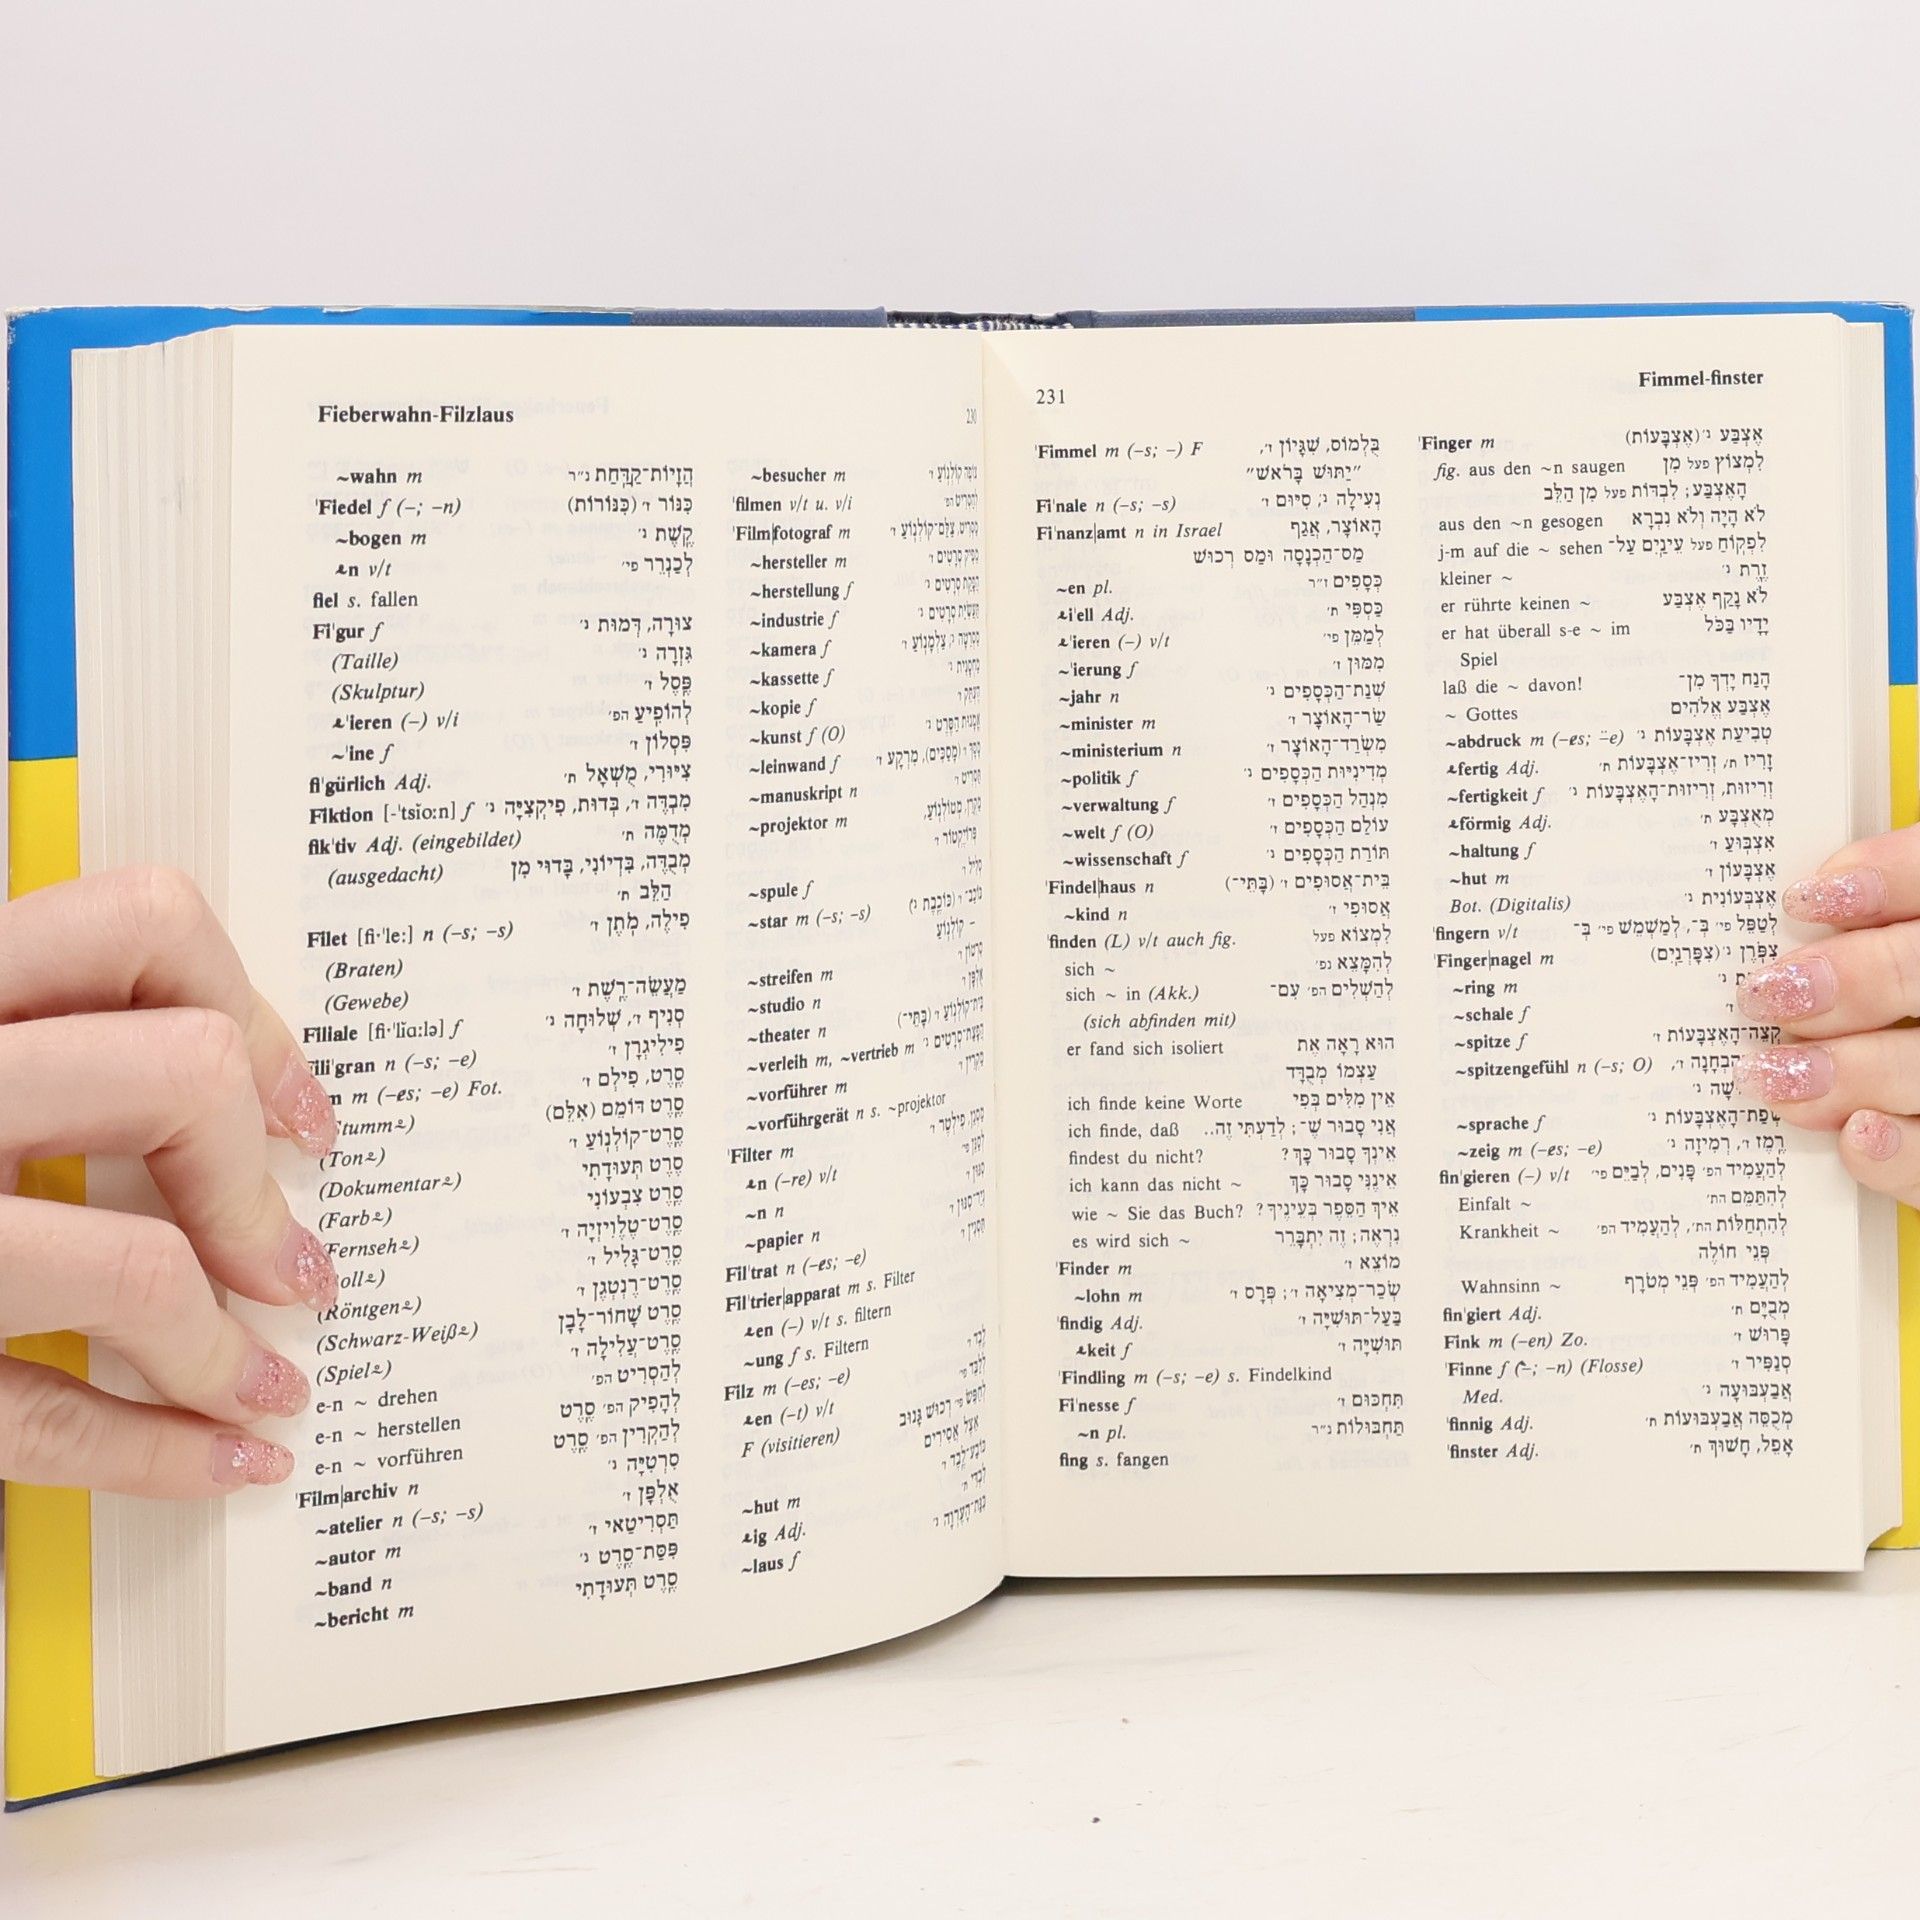 Fieberwahn-Filzlaus
230
~wahn m הֲזָיוֹת־קַדַּחַת נ״ר
'Fiedel f (–; –n) כִּנּוֹר ז׳ (כִּנּוֹרוֹת)
~bogen m קֶשֶׁת נ׳
ₒn v/t לְכַנְרֵר פי׳
fiel s. fallen
Fi'gur f צוּרָה, דְּמוּת נ׳
(Taille) גִּזְרָה נ׳
(Skulptur) פֶּסֶל ז׳
ₒ'ieren (–) v/i לְהוֹפִיעַ הפ׳
~'ine f פִּסְלוֹן ז׳
fi'gürlich Adj. צִיּוּרִי, מֻשְׁאָל ת׳
Fiktion [-'tsĭo:n] f מִבְדֶּה ז׳, בְּדוּת, פִיקְצִיָּה נ׳
fik'tiv Adj. (eingebildet) מְדֻמֶּה ת׳
(ausgedacht) מְבֻדֶּה, בִּדְיוֹנִי, בָּדוּי מִן
הַלֵּב ת׳
Filet [fi·'le:] n (–s; –s) פִילֶה, מֹתֶן ז׳
(Braten)
(Gewebe) מַעֲשֵׂה־רֶשֶׁת ז׳
Filiale [fi·'lĭɑ:lə] f סְנִיף ז׳, שְׁלוּחָה נ׳
ili'gran n (–s; –e) פִילִיגְרָן ז׳
m m (–es; –e) Fot. סֶרֶט, פִילְם ז׳
Stummₒ) סֶרֶט דּוֹמֵם (אִלֵּם)
(Tonₒ) סֶרֶט־קוֹלְנוֹעַ ז׳
(Dokumentarₒ) סֶרֶט תְּעוּדָתִי
(Farbₒ) סֶרֶט צִבְעוֹנִי
(Fernsehₒ) סֶרֶט־טֶלֶוִיזְיָה ז׳
ollₒ) סֶרֶט־גָּלִיל ז׳
(Röntgenₒ) סֶרֶט־רֶנְטְגֶן ז׳
(Schwarz-Weißₒ) סֶרֶט שָׁחוֹר־לָבָן
(Spielₒ) סֶרֶט־עֲלִילָה ז׳
e-n ~ drehen לְהַסְרִיט הפ׳
e-n ~ herstellen לְהָפִיק הפ׳ סֶרֶט
e-n ~ vorführen לְהַקְרִין הפ׳ סֶרֶט
'Film|archiv n סִרְטִיָּה נ׳
~atelier n (–s; –s) אֻלְפָּן ז׳
~autor m תַּסְרִיטַאי ז׳
~band n פִּסַּת־סֶרֶט נ׳
~bericht m סֶרֶט תְּעוּדָתִי
~besucher m
'filmen v/t u. v/i
'Film|fotograf m
~hersteller m
~herstellung f
~industrie f
~kamera f
~kassette f
~kopie f
~kunst f (O)
~leinwand f
~manuskript n
~projektor m
~spule f
~star m (–s; –s)
~streifen m
~studio n
~theater n
~verleih m, ~vertrieb m
~vorführer m
~vorführgerät n s. ~projektor
'Filter m
ₒn (–re) v/t
~n n
~papier n
Fil'trat n (–es; –e)
Fil'trier|apparat m s. Filter
ₒen (–) v/t s. filtern
~ung f s. Filtern
Filz m (–es; –e)
ₒen (–t) v/t
F (visitieren)
~hut m
ₒig Adj.
~laus f
231
Fimmel-finster
'Fimmel m (–s; –) F בֻּלְמוֹס, שִׁגָּיוֹן ז׳,
״יַתּוּשׁ בָּרֹאשׁ״
Fi'nale n (–s; –s) נְעִילָה נ׳, סִיּוּם ז׳
Fi'nanz|amt n in Israel הָאוֹצָר, אֲגַף
מַס־הַכְנָסָה וּמַס רְכוּשׁ
~en pl. כְּסָפִים ז״ר
ₒi'ell Adj. כַּסְפִּי ת׳
ₒ'ieren (–) v/t לְמַמֵּן פי׳
~'ierung f מִמּוּן ז׳
~jahr n שְׁנַת־הַכְּסָפִים נ׳
~minister m שַׂר־הָאוֹצָר ז׳
~ministerium n מִשְׂרַד־הָאוֹצָר ז׳
~politik f מְדִינִיּוּת הַכְּסָפִים נ׳
~verwaltung f מִנְהַל הַכְּסָפִים ז׳
~welt f (O) עוֹלַם הַכְּסָפִים ז׳
~wissenschaft f תּוֹרַת הַכְּסָפִים נ׳
'Findel|haus n בֵּית־אֲסוּפִים ז׳ (בָּתֵּי־)
~kind n אֲסוּפִי ז׳
'finden (L) v/t auch fig. לִמְצוֹא פעל
sich ~ לְהִמָּצֵא נפ׳
sich ~ in (Akk.) לְהַשְׁלִים הפ׳ עִם־
(sich abfinden mit)
er fand sich isoliert הוּא רָאָה אֶת
עַצְמוֹ מְבֻדָּד
ich finde keine Worte אֵין מִלִּים בְּפִי
ich finde, daß אֲנִי סָבוּר שֶׁ־; לְדַעְתִּי זֶה..
findest du nicht? אֵינְךָ סָבוּר כָּךְ?
ich kann das nicht ~ אֵינֶנִּי סָבוּר כָּךְ
wie ~ Sie das Buch? אֵיךְ הַסֵּפֶר בְּעֵינֶיךָ?
es wird sich ~ נִרְאֶה; זֶה יִתְבָּרֵר
'Finder m מוֹצֵא ז׳
~lohn m שְׂכַר־מְצִיאָה ז׳; פְּרָס ז׳
'findig Adj. בַּעַל־תּוּשִׁיָּה ז׳
ₒkeit f תּוּשִׁיָּה ז׳
'Findling m (–s; –e) s. Findelkind
Fi'nesse f תַּחְכּוּם ז׳
~n pl. תַּחְבּוּלוֹת נ״ר
fing s. fangen
'Finger m אֶצְבַּע נ׳ (אֶצְבָּעוֹת)
fig. aus den ~n saugen לִמְצוֹץ פעל מִן
הָאֶצְבַּע; לִבְדּוֹת פעל מִן הַלֵּב
aus den ~n gesogen לֹא הָיָה וְלֹא נִבְרָא
j-m auf die ~ sehen לִפְקוֹחַ פעל עֵינַיִם עַל־
kleiner ~ זֶרֶת נ׳
er rührte keinen ~ לֹא נָקַף אֶצְבַּע
er hat überall s-e ~ im יָדָיו בַּכֹּל
Spiel
laß die ~ davon! הָנַח יָדְךָ מִן־
~ Gottes אֶצְבַּע אֱלֹהִים
~abdruck m (–es; ⸚e) טְבִיעַת אֶצְבָּעוֹת נ׳
ₒfertig Adj. זָרִיז ת׳, זְרִיז־אֶצְבָּעוֹת ת׳
~fertigkeit f זְרִיזוּת, זְרִיזוּת־הָאֶצְבָּעוֹת נ׳
ₒförmig Adj. מְאֻצְבָּע ת׳
~haltung f אִצְבּוּעַ ז׳
~hut m אֶצְבָּעוֹן ז׳
Bot. (Digitalis) אֶצְבְּעוֹנִית נ׳
'fingern v/t לְטַפֵּל פי׳ בְּ־, לְמַשְׁמֵשׁ פי׳ בְּ־
'Finger|nagel m צִפֹּרֶן נ׳ (צִפָּרְנַיִם)
~ring m
~schale f
~spitze f קְצֵה־הָאֶצְבָּעוֹת ז׳
~spitzengefühl n (–s; O)
~sprache f שְׂפַת־הָאֶצְבָּעוֹת נ׳
~zeig m (–es; –e) רֶמֶז ז׳, רְמִיזָה נ׳
fin'gieren (–) v/t לְהַעֲמִיד הפ׳ פָּנִים, לְבַיֵּם פי׳
Einfalt ~ לְהִתַּמֵּם הת׳
Krankheit ~ לְהִתְחַלּוֹת הת׳, לְהַעֲמִיד הפ׳
פְּנֵי חוֹלֶה
Wahnsinn ~ לְהַעֲמִיד הפ׳ פְּנֵי מְטֹרָף
fin'giert Adj. מְבֻיָּם ת׳
Fink m (–en) Zo. פָּרוּשׁ ז׳
'Finne f (–; –n) (Flosse) סְנַפִּיר ז׳
Med. אֲבַעְבּוּעָה נ׳
'finnig Adj. מְכֻסֶּה אֲבַעְבּוּעוֹת ת׳
'finster Adj. אָפֵל, חָשׁוּךְ ת׳